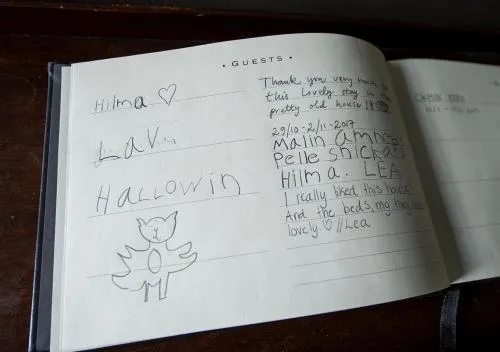 • GUESTS •
Hilma ♡
Lav
HALLOWIN
Thank you very much
this lovely stay in
pretty old house!
29/10-2/11-2017
Malin
Pelle Snickars
Hilma. LEA
I really liked this house
And the beds, mg they
lovely. ♡ //Lea